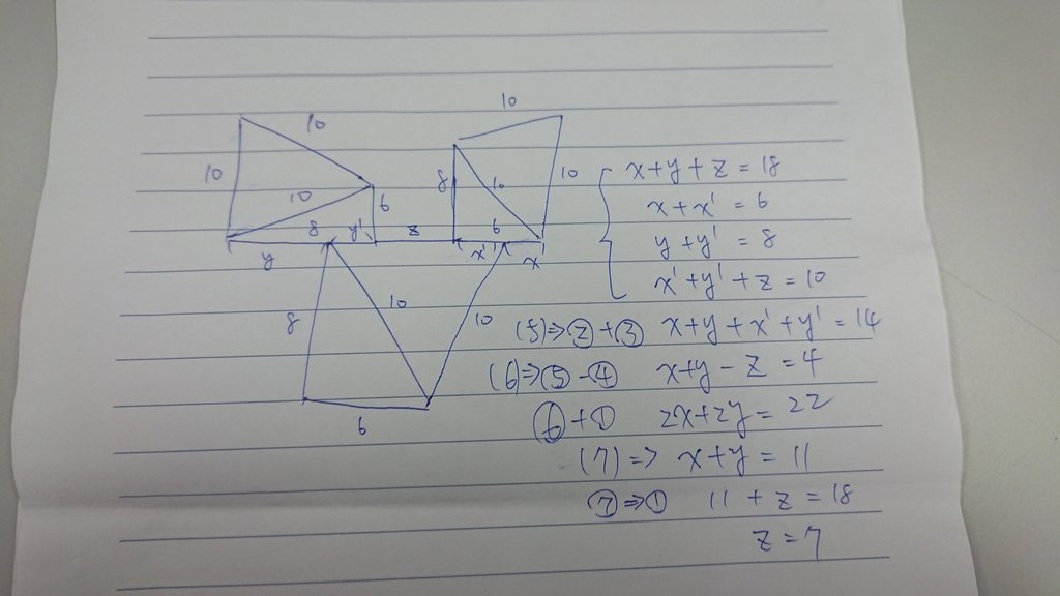 10
10
10
10
10
8
10
10
6
8
y'
z
6
y
x'
x'
8
10
10
6
x+y+z=18
x+x'=6
y+y'=8
x'+y'+z=10
(5)⇒②+③ x+y+x'+y'=14
(6)⇒⑤-④ x+y-z=4
⑥+① 2x+2y=22
(7)⇒ x+y=11
⑦⇒① 11+z=18
z=7